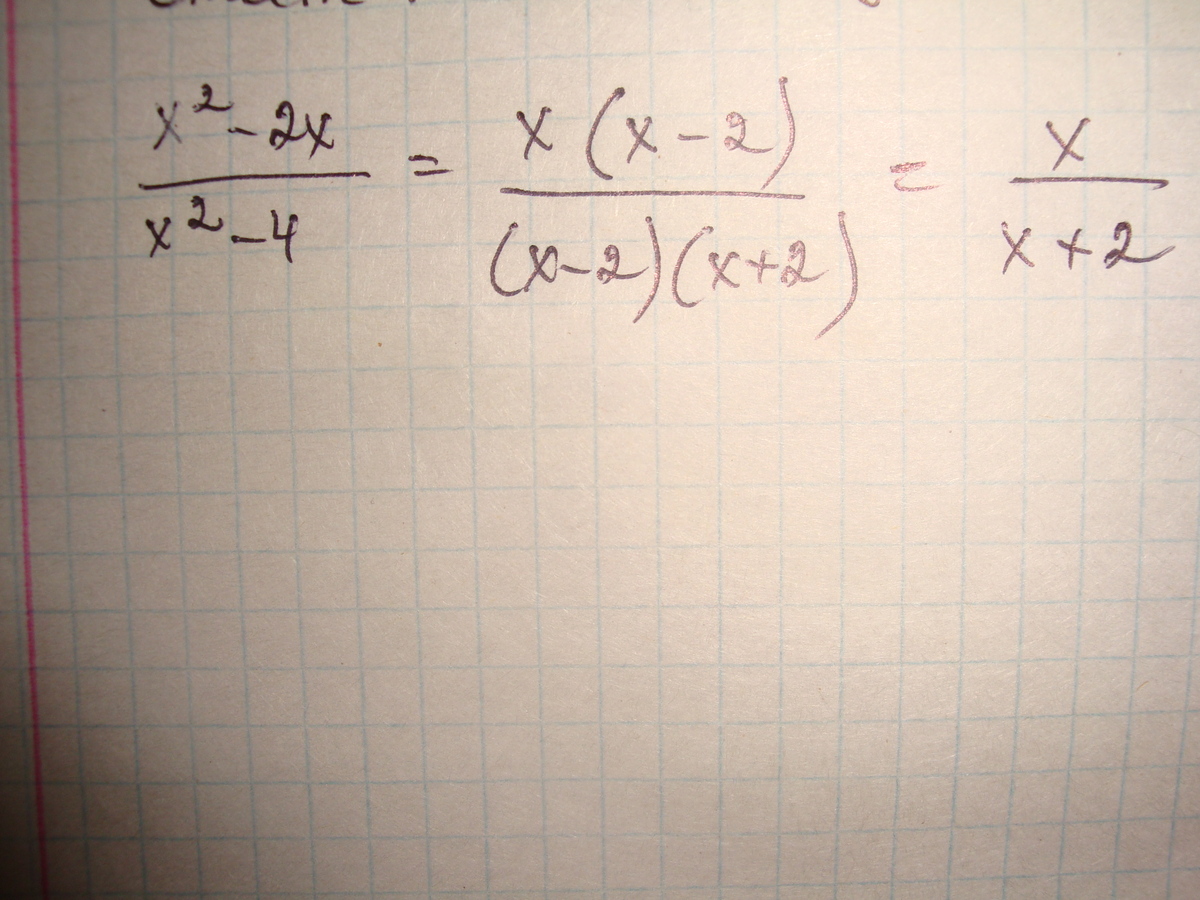 x² - 2x / x² - 4 = x (x - 2) / (x - 2)(x + 2) = x / x + 2